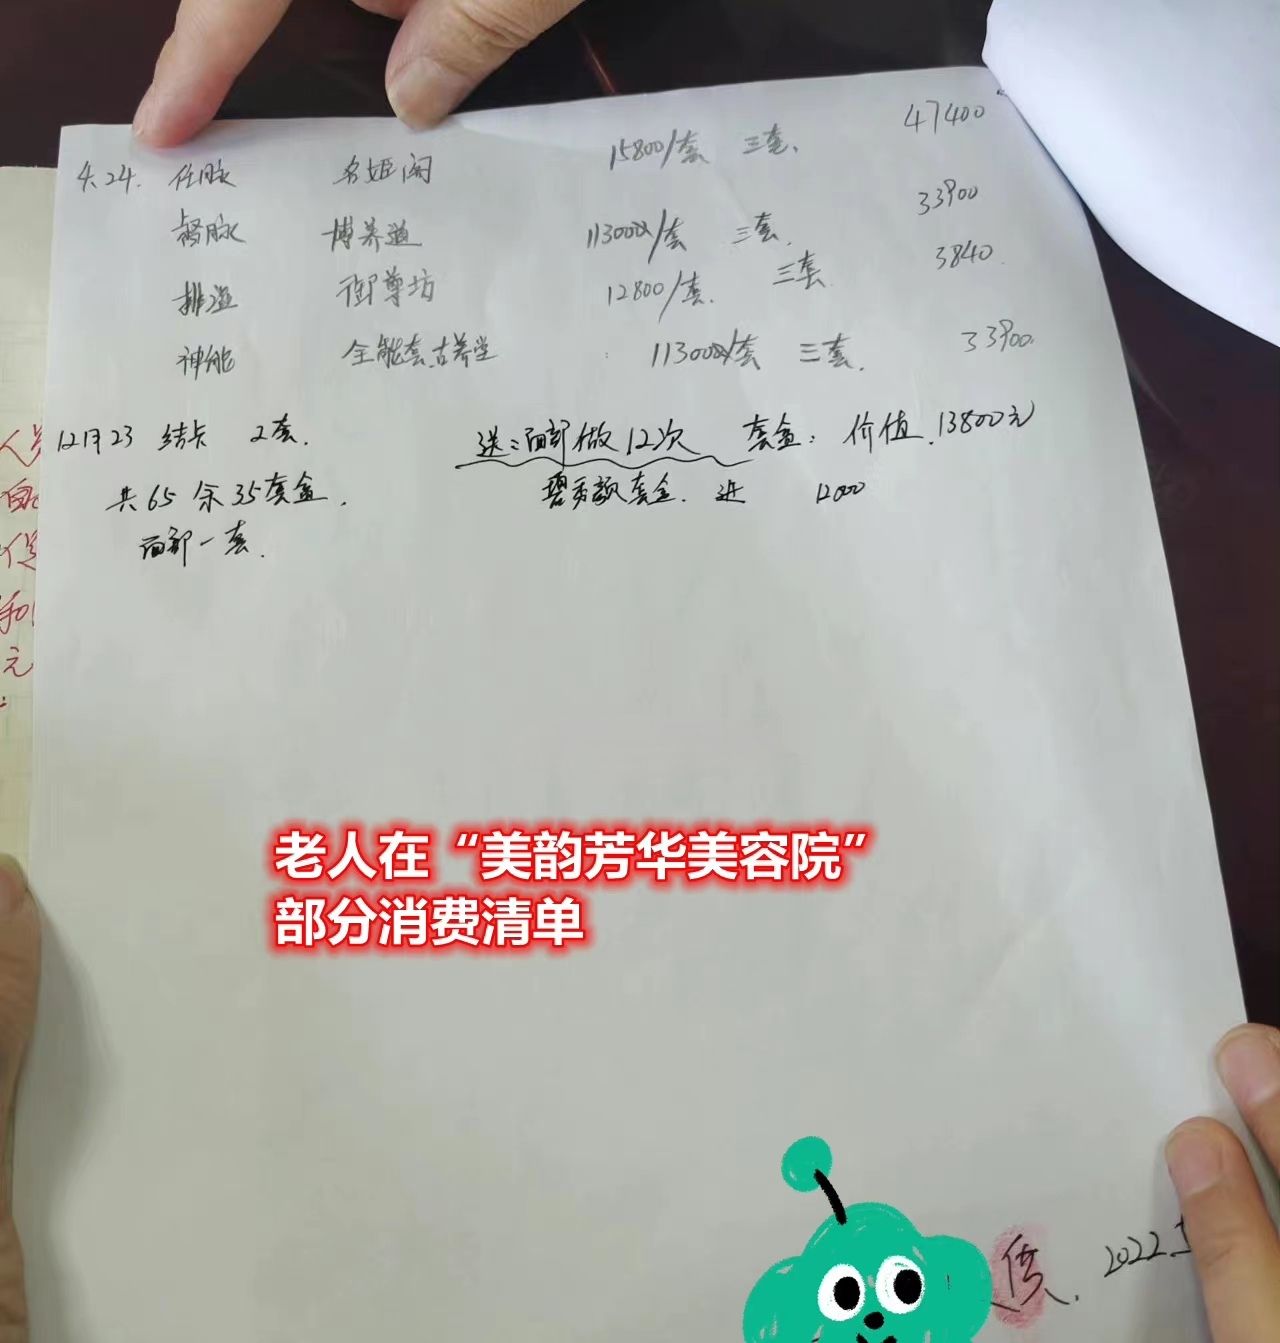 4.24. 任脉 名姬阁 15800/套 三套. 47400
督脉 博养道 11300/套 三套. 33900
排温 御尊坊 12800/套. 三套 3840
神能 全能套.古养堂 11300/套 三套. 33900
12月23 结卡 2套. 送:面部做12次 套盒: 价值.13800元
共65余35套盒. 套盒. 近 12000
面部一套.
老人在“美韵芳华美容院”
部分消费清单
2022.